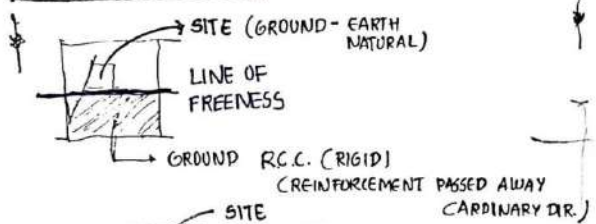 SITE (GROUND - EARTH
NATURAL)
LINE OF
FREENESS
GROUND R.C.C. (RIGID)
(REINFORCEMENT PASSED AWAY
CARDINARY DIR.)
SITE